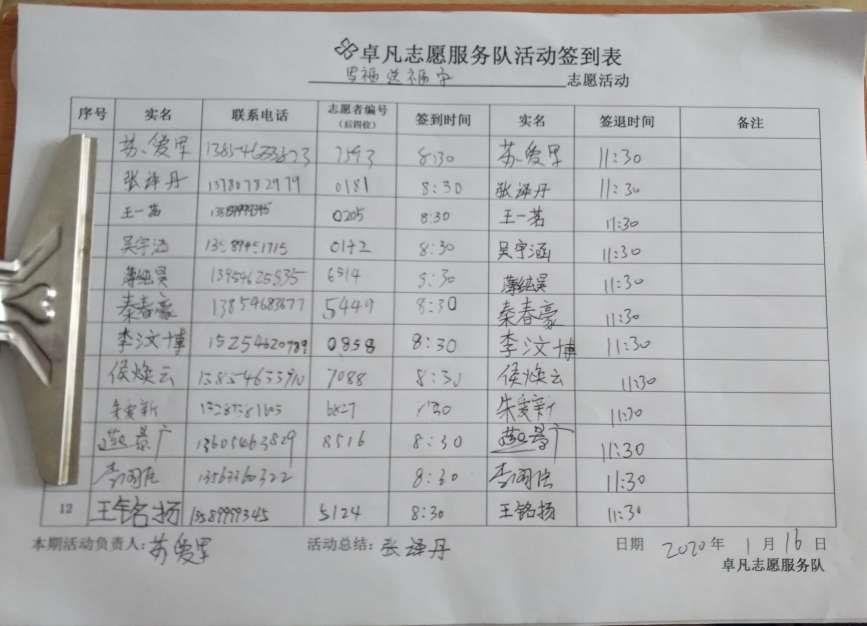 卓凡志愿服务队活动签到表
送福字 志愿活动
序号 实名 联系电话 志愿者编号(后四位) 签到时间 实名 签退时间 备注
苏爱军 7593 8:30 苏爱军 11:30
张译丹 13780782979 0181 8:30 张译丹 11:30
王一茗 0205 8:30 王一茗 11:30
吴宇涵 0142 8:30 吴宇涵 11:30
薄纯昊 13954625535 6514 8:30 薄纯昊 11:30
秦春豪 13854683677 5449 8:30 秦春豪 11:30
李汶博 15254620789 0858 8:30 李汶博 11:30
侯焕云 7088 8:30 侯焕云 11:30
朱爱新 6827 朱爱新 11:30
燕景广 13605463829 8516 8:30 燕景广 11:30
13563360322 8:30 11:30
12 王铭扬 13589999345 5124 8:30 王铭扬 11:30
本期活动负责人:苏爱军 活动总结:张译丹 日期 2020年1月16日
卓凡志愿服务队